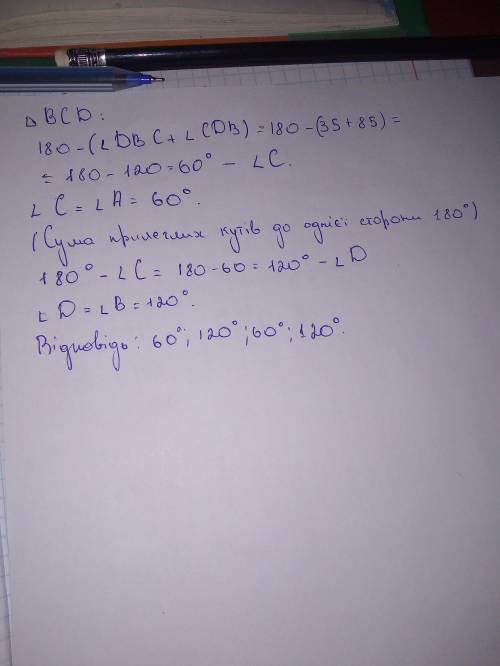 Δ BCD:
180-(∠DBC+∠CDB)=180-(35+85)=
=180-120=60° - ∠C.
∠C=∠A=60°.
(Сума прилеглих кутів до однієї сторони 180°)
180°-∠C=180-60=120° - ∠D
∠D=∠B=120°.
Відповідь: 60°; 120°; 60°; 120°.